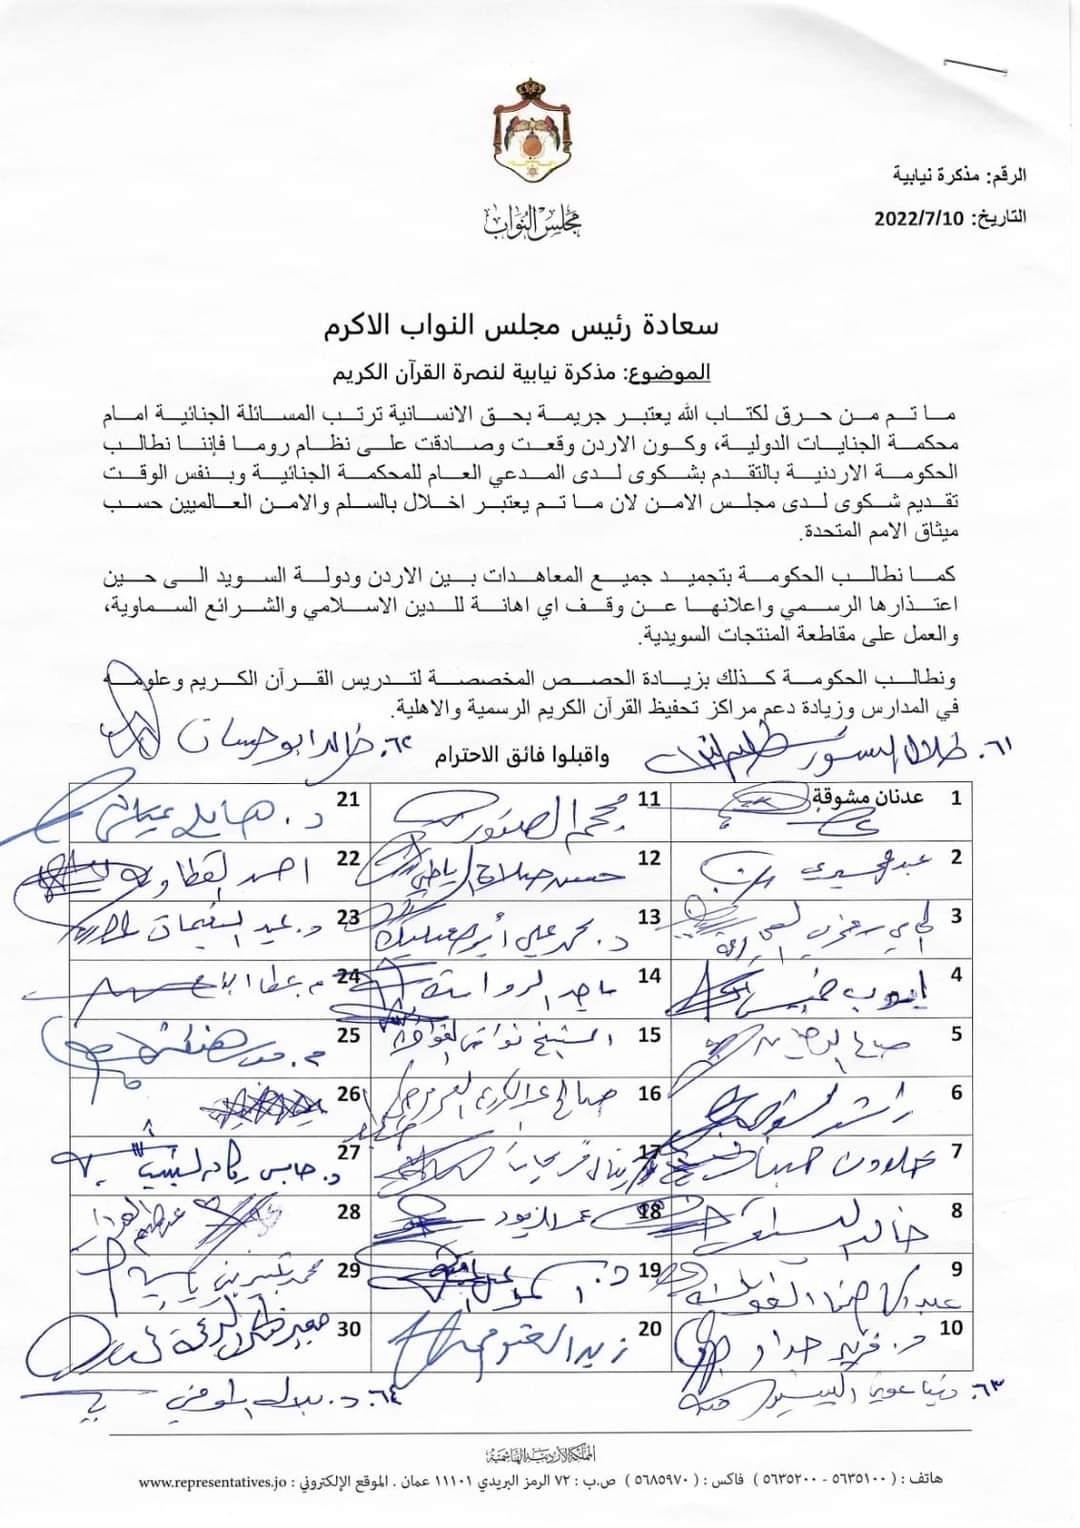 مجلس النواب
الرقم: مذكرة نيابية
التاريخ: 2022/7/10
سعادة رئيس مجلس النواب الاكرم
الموضوع: مذكرة نيابية لنصرة القرآن الكريم
ما تم من حرق لكتاب الله يعتبر جريمة بحق الانسانية ترتب المسائلة الجنائية امام
محكمة الجنايات الدولية، وكون الاردن وقعت وصادقت على نظام روما فإننا نطالب
الحكومة الاردنية بالتقدم بشكوى لدى المدعي العام للمحكمة الجنائية وبنفس الوقت
تقديم شكوى لدى مجلس الامن لان ما تم يعتبر اخلال بالسلم والامن العالميين حسب
ميثاق الامم المتحدة.
كما نطالب الحكومة بتجميد جميع المعاهدات بين الاردن ودولة السويد الى حين
اعتذارها الرسمي واعلانها عن وقف اي اهانة للدين الاسلامي والشرائع السماوية،
والعمل على مقاطعة المنتجات السويدية.
ونطالب الحكومة كذلك بزيادة الحصص المخصصة لتدريس القرآن الكريم وعلومه
في المدارس وزيادة دعم مراكز تحفيظ القرآن الكريم الرسمية والاهلية.
٦١. طلال النسور
٦٢. خالد ابو حسان
واقبلوا فائق الاحترام
1 عدنان مشوقة
11
21 د. هايل عياش
2
12 حسن صلاح الرياطي
22 احمد القطاونة
3
13 د. محمد علي أبو صعيليك
23 د. عيد النعيمات
4 ايوب خميس
14 ماجد الرواشدة
24
5
15
25
6 راشد الشوحة
16 صالح عبدالكريم العرموطي
26
7 خلدون حينا
17 فريحات
27 د. حابس ركاد الشبيب
8 خالد البستنجي
18 عمر الزيود
28
9
19 د.
29 محمد
30
10 د. فريد حداد
20 زيد العتوم
٦٣.
٦٤. د. بلال المومني
المملكة الأردنية الهاشمية
هاتف : ( ٥٦٣٥١٠٠ - ٥٦٣٥٢٠٠ ) فاكس : ( ٥٦٨٥٩٧٠ ) ص.ب : ٧٢ الرمز البريدي ١١١٠١ عمان . الموقع الإلكتروني : www.representatives.jo